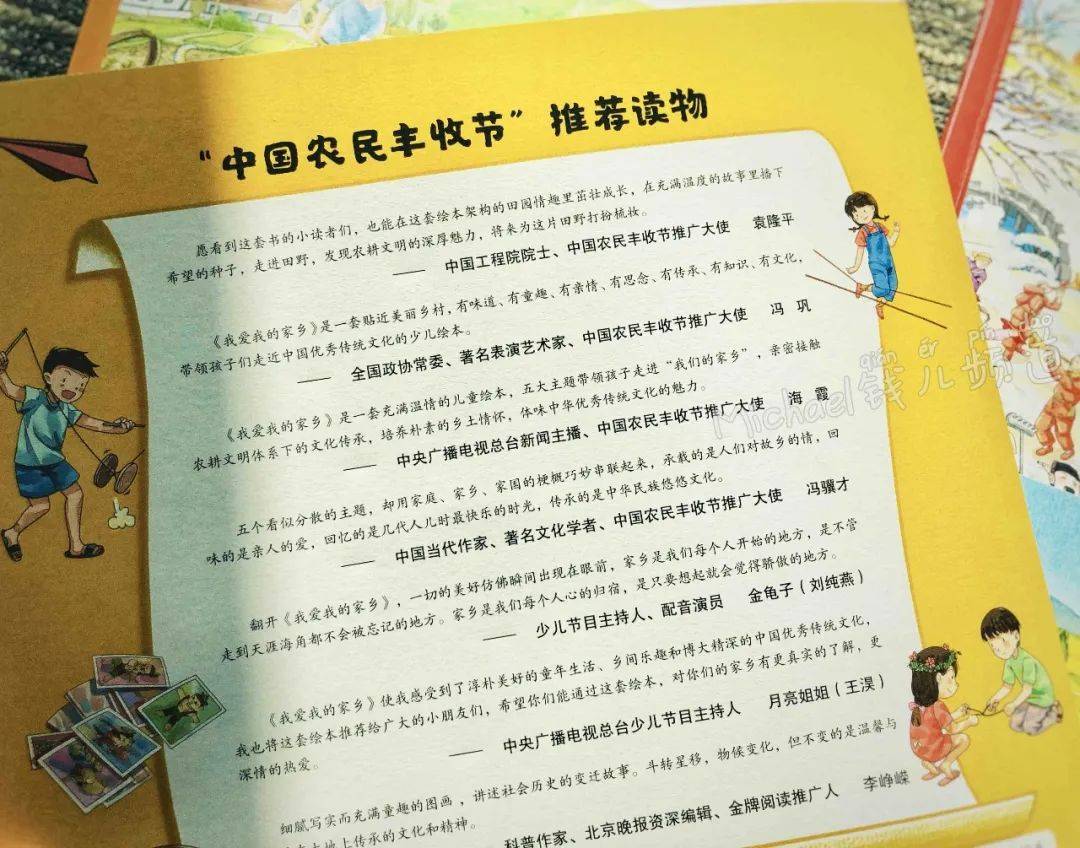 “中国农民丰收节”推荐读物
愿看到这套书的小读者们，也能在这套绘本架构的田园情趣里茁壮成长，在充满温度的故事里播下
希望的种子，走进田野，发现农耕文明的深厚魅力，将来为这片田野打扮梳妆。
—— 中国工程院院士、中国农民丰收节推广大使 袁隆平
《我爱我的家乡》是一套贴近美丽乡村，有味道、有童趣、有亲情、有思念、有传承、有知识、有文化，
带领孩子们走近中国优秀传统文化的少儿绘本。
—— 全国政协常委、著名表演艺术家、中国农民丰收节推广大使 冯 巩
《我爱我的家乡》是一套充满温情的儿童绘本，五大主题带领孩子走进“我们的家乡”，亲密接触
农耕文明体系下的文化传承，培养朴素的乡土情怀，体味中华优秀传统文化的魅力。
—— 中央广播电视总台新闻主播、中国农民丰收节推广大使 海 霞
五个看似分散的主题，却用家庭、家乡、家国的梗概巧妙串联起来，承载的是人们对故乡的情，回
味的是亲人的爱，回忆的是几代人儿时最快乐的时光，传承的是中华民族悠悠文化。
—— 中国当代作家、著名文化学者、中国农民丰收节推广大使 冯骥才
翻开《我爱我的家乡》，一切的美好仿佛瞬间出现在眼前，家乡是我们每个人开始的地方，是不管
走到天涯海角都不会被忘记的地方。家乡是我们每个人心的归宿，是只要想起就会觉得骄傲的地方。
—— 少儿节目主持人、配音演员 金龟子（刘纯燕）
《我爱我的家乡》使我感受到了淳朴美好的童年生活、乡间乐趣和博大精深的中国优秀传统文化，
我也将这套绘本推荐给广大的小朋友们，希望你们能通过这套绘本，对你们的家乡有更真实的了解，更
深情的热爱。
—— 中央广播电视总台少儿节目主持人 月亮姐姐（王淏）
细腻写实而充满童趣的图画，讲述社会历史的变迁故事。斗转星移，物候变化，但不变的是温馨与
大地上传承的文化和精神。
科普作家、北京晚报资深编辑、金牌阅读推广人 李峥嵘
Michael钱儿频道